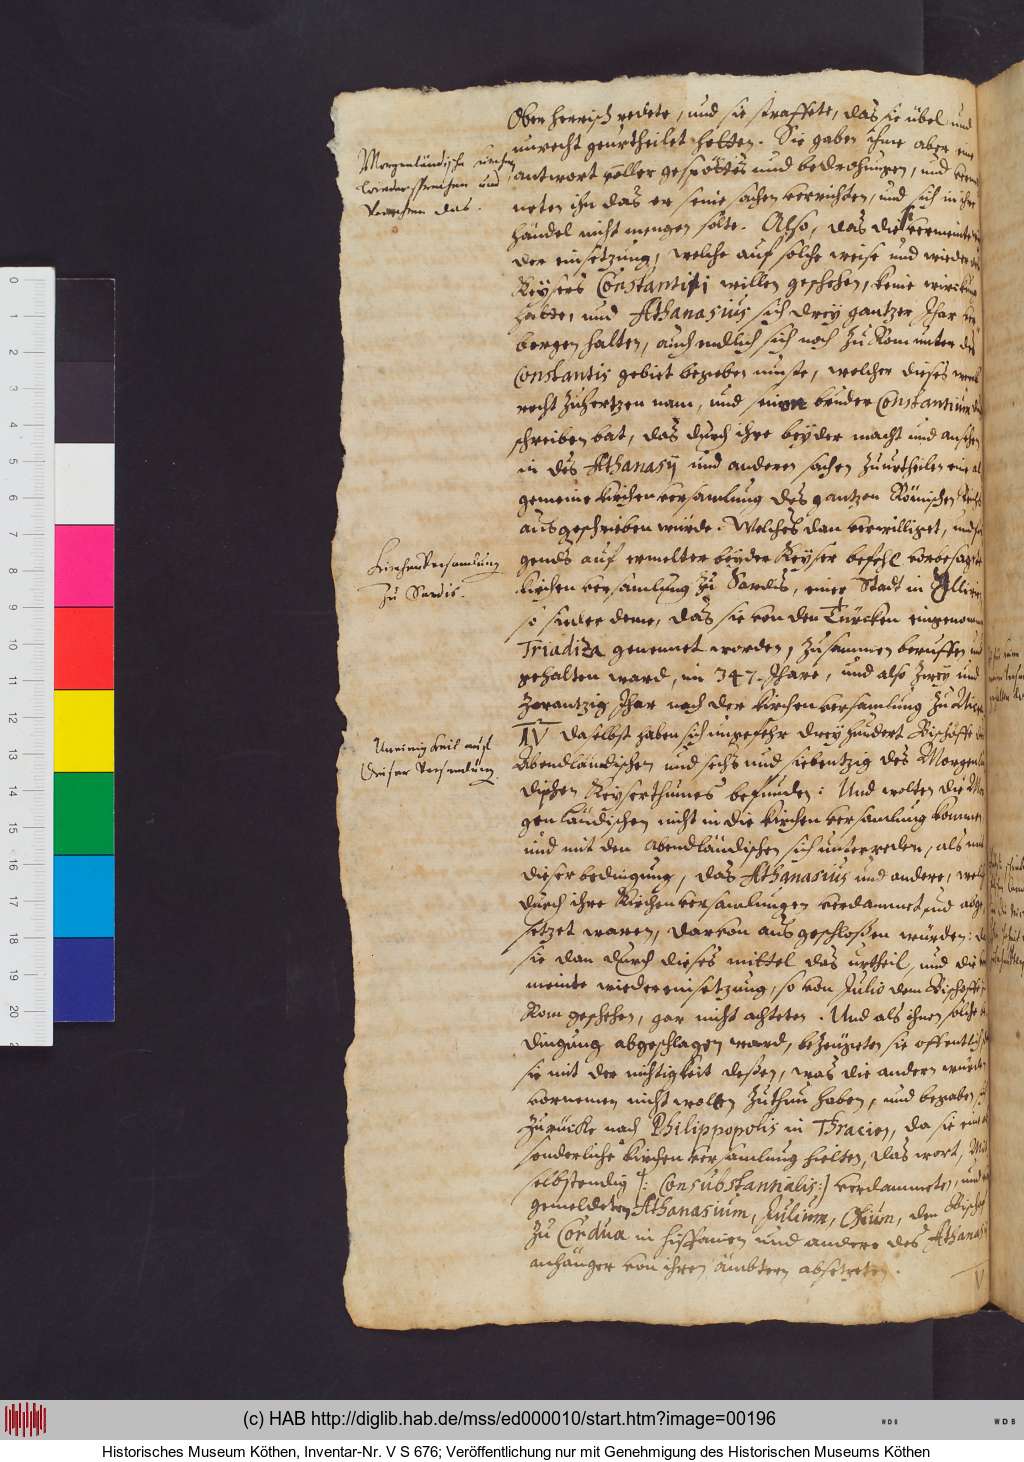 Oberherrisch redete, und sie straffete, das sie übel und
unrecht geurtheilet hetten. Sie gaben ihme aber eine
antwort voller gespöttes und bedrohungen, und
neten ihn das er seine sachen verrichten, und sich in ihre
händel nicht mengen solte. Also, das die vermeinte
der einsetzung, welche auf solche weise und wieder
Keysers Constantii willen geschehen, keine wirckung
hatte, und Athanasius sich drey gantzer Jhar
bergen halten, auch endlich sich nach zu Rom unter des
Constantis gebiet begeben muste, welcher dieses
recht zuhertzen nam, und seinen bruder Constantium
schreiben bat, das durch ihre beyder macht und ansehen
in des Athanasij und anderen sachen zuurtheilen eine al
gemeine kirchenversamlung des gantzen Römischen Reichs
ausgeschrieben würde. Welches dan verwilliget, und
gends auf ermelter beyder Keyser befehl vorbesagte
kirchenversamlung zu Sardis, einer Stadt in Illirien,
so sieder deme, das sie von den Türcken eingenommen
Triadiza genennet worden, zusammen beruffen und
gehalten ward, im 347. Jhare, und also zwey und
zwantzig Jhar nach der kirchenversamlung zu Nicea
IV daselbst haben sich ungefehr dreyhundert Bischöffe
Abendländischen und sechs und siebentzig des Morgenlän
dischen Keyserthumes befunden: Und wolten die Mor
genländischen nicht in die kirchenversamlung kommen
und mit den Abendländischen sich unterreden, als mit
dieser bedingung, das Athanasius und andere, welche
durch ihre Kirchenversamlungen verdammet und abge
setzet waren, darvon ausgeschloßen würden:
sie dan durch dieses mittel das urtheil, und die ver
meinte wiedereinsetzung, so von Julio dem Bischoffe
Rom geschehen, gar nicht achteten. Und als ihnen solche be
dingung abgeschlagen ward, bezeugeten sie offentlich
sie mit der nichtigkeit deßen, was die andern würden
vornemen nicht wolten zuthun haben, und begaben sich
zurücke nach Philippopolis in Thracien, da sie eine
sonderliche kirchenversamlung hielten, das wort, Mit
selbstendig [: Consubstantialis:] verdammeten, und
gemeldeten Athanasium, Julium, Osium, den Bischof
zu Cordua in Hispanien und andere des Athanasij
anhänger von ihren ämbtern absetzeten.
V
Morgenländische kirchen
wiedersprechen und
das.
KirchenVersamlung
zu Sardis.
Uneinigkeit auf
dieser Versamlung.
0
2
3
4
5
6
7
8
9
10
11
12
13
14
15
16
17
18
19
20
(c) HAB http://diglib.hab.de/mss/ed000010/start.htm?image=00196
WDB
WDB
Historisches Museum Köthen, Inventar-Nr. V S 676; Veröffentlichung nur mit Genehmigung des Historischen Museums Köthen